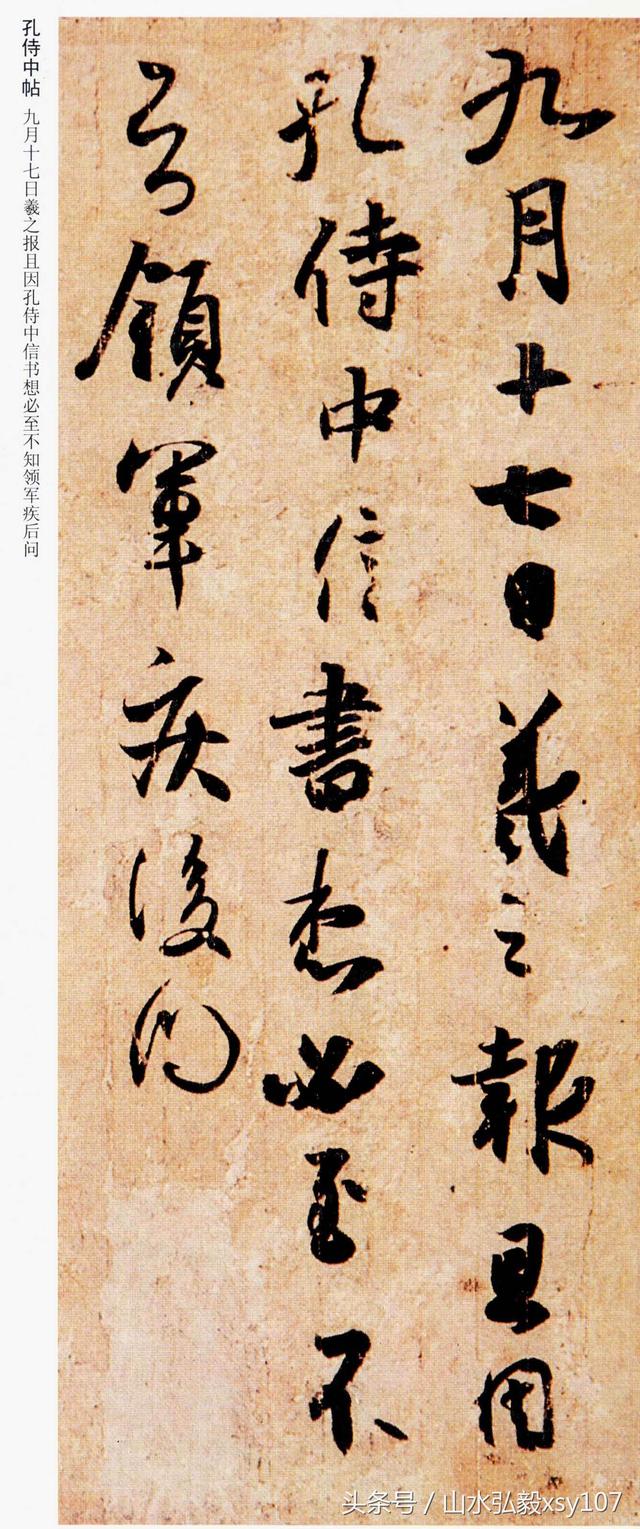 九月十七日羲之報且因
孔侍中信書想必至不
知領軍疾後問
孔侍中帖 九月十七日羲之报且因孔侍中信书想必至不知领军疾后问
头条号 / 山水弘毅xsy107